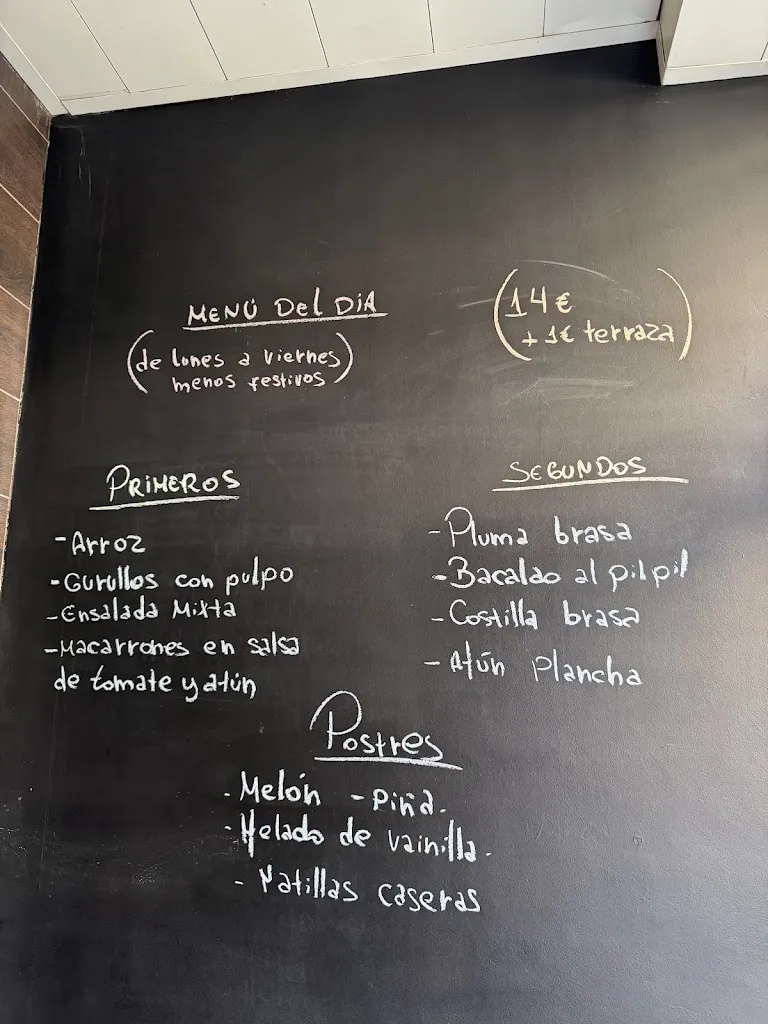 MENÚ DEL DÍA
(de lunes a viernes
menos festivos)
(14€
+ 1€ terraza)
PRIMEROS
-Arroz
-Gurullos con pulpo
-Ensalada Mixta
-Macarrones en salsa
de tomate y atún
SEGUNDOS
-Pluma brasa
-Bacalao al pilpil
-Costilla brasa
-Atún Plancha
Postres
-Melón -Piña.
-Helado de vainilla.
-Natillas caseras